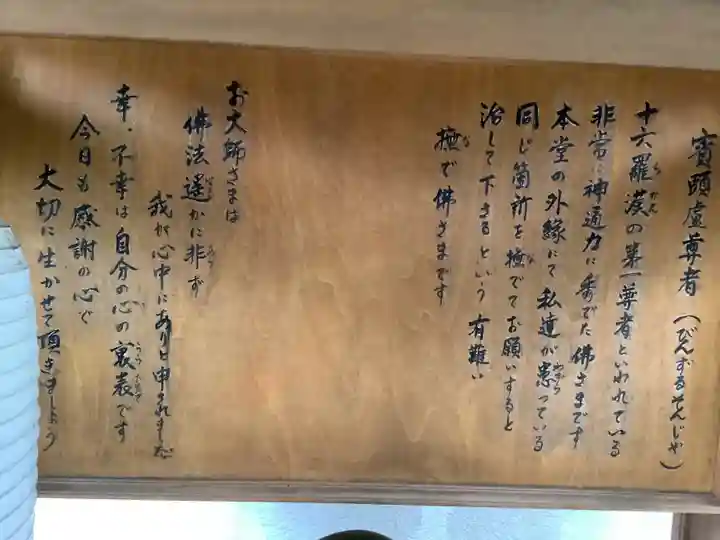 賓頭盧尊者(びんずるそんじゃ)
十六羅漢の第一尊者といわれている
非常に神通力に秀でた佛さまです
本堂の外縁にて私達が患っている
同じ箇所を撫でてお願いすると
治して下さるという有難い
撫で佛さまです
お大師さまは
佛法遥かに非ず
我が心中にありと申されました
幸、不幸は自分の心の裏表です
今日も感謝の心で
大切に生かせて頂きましょう